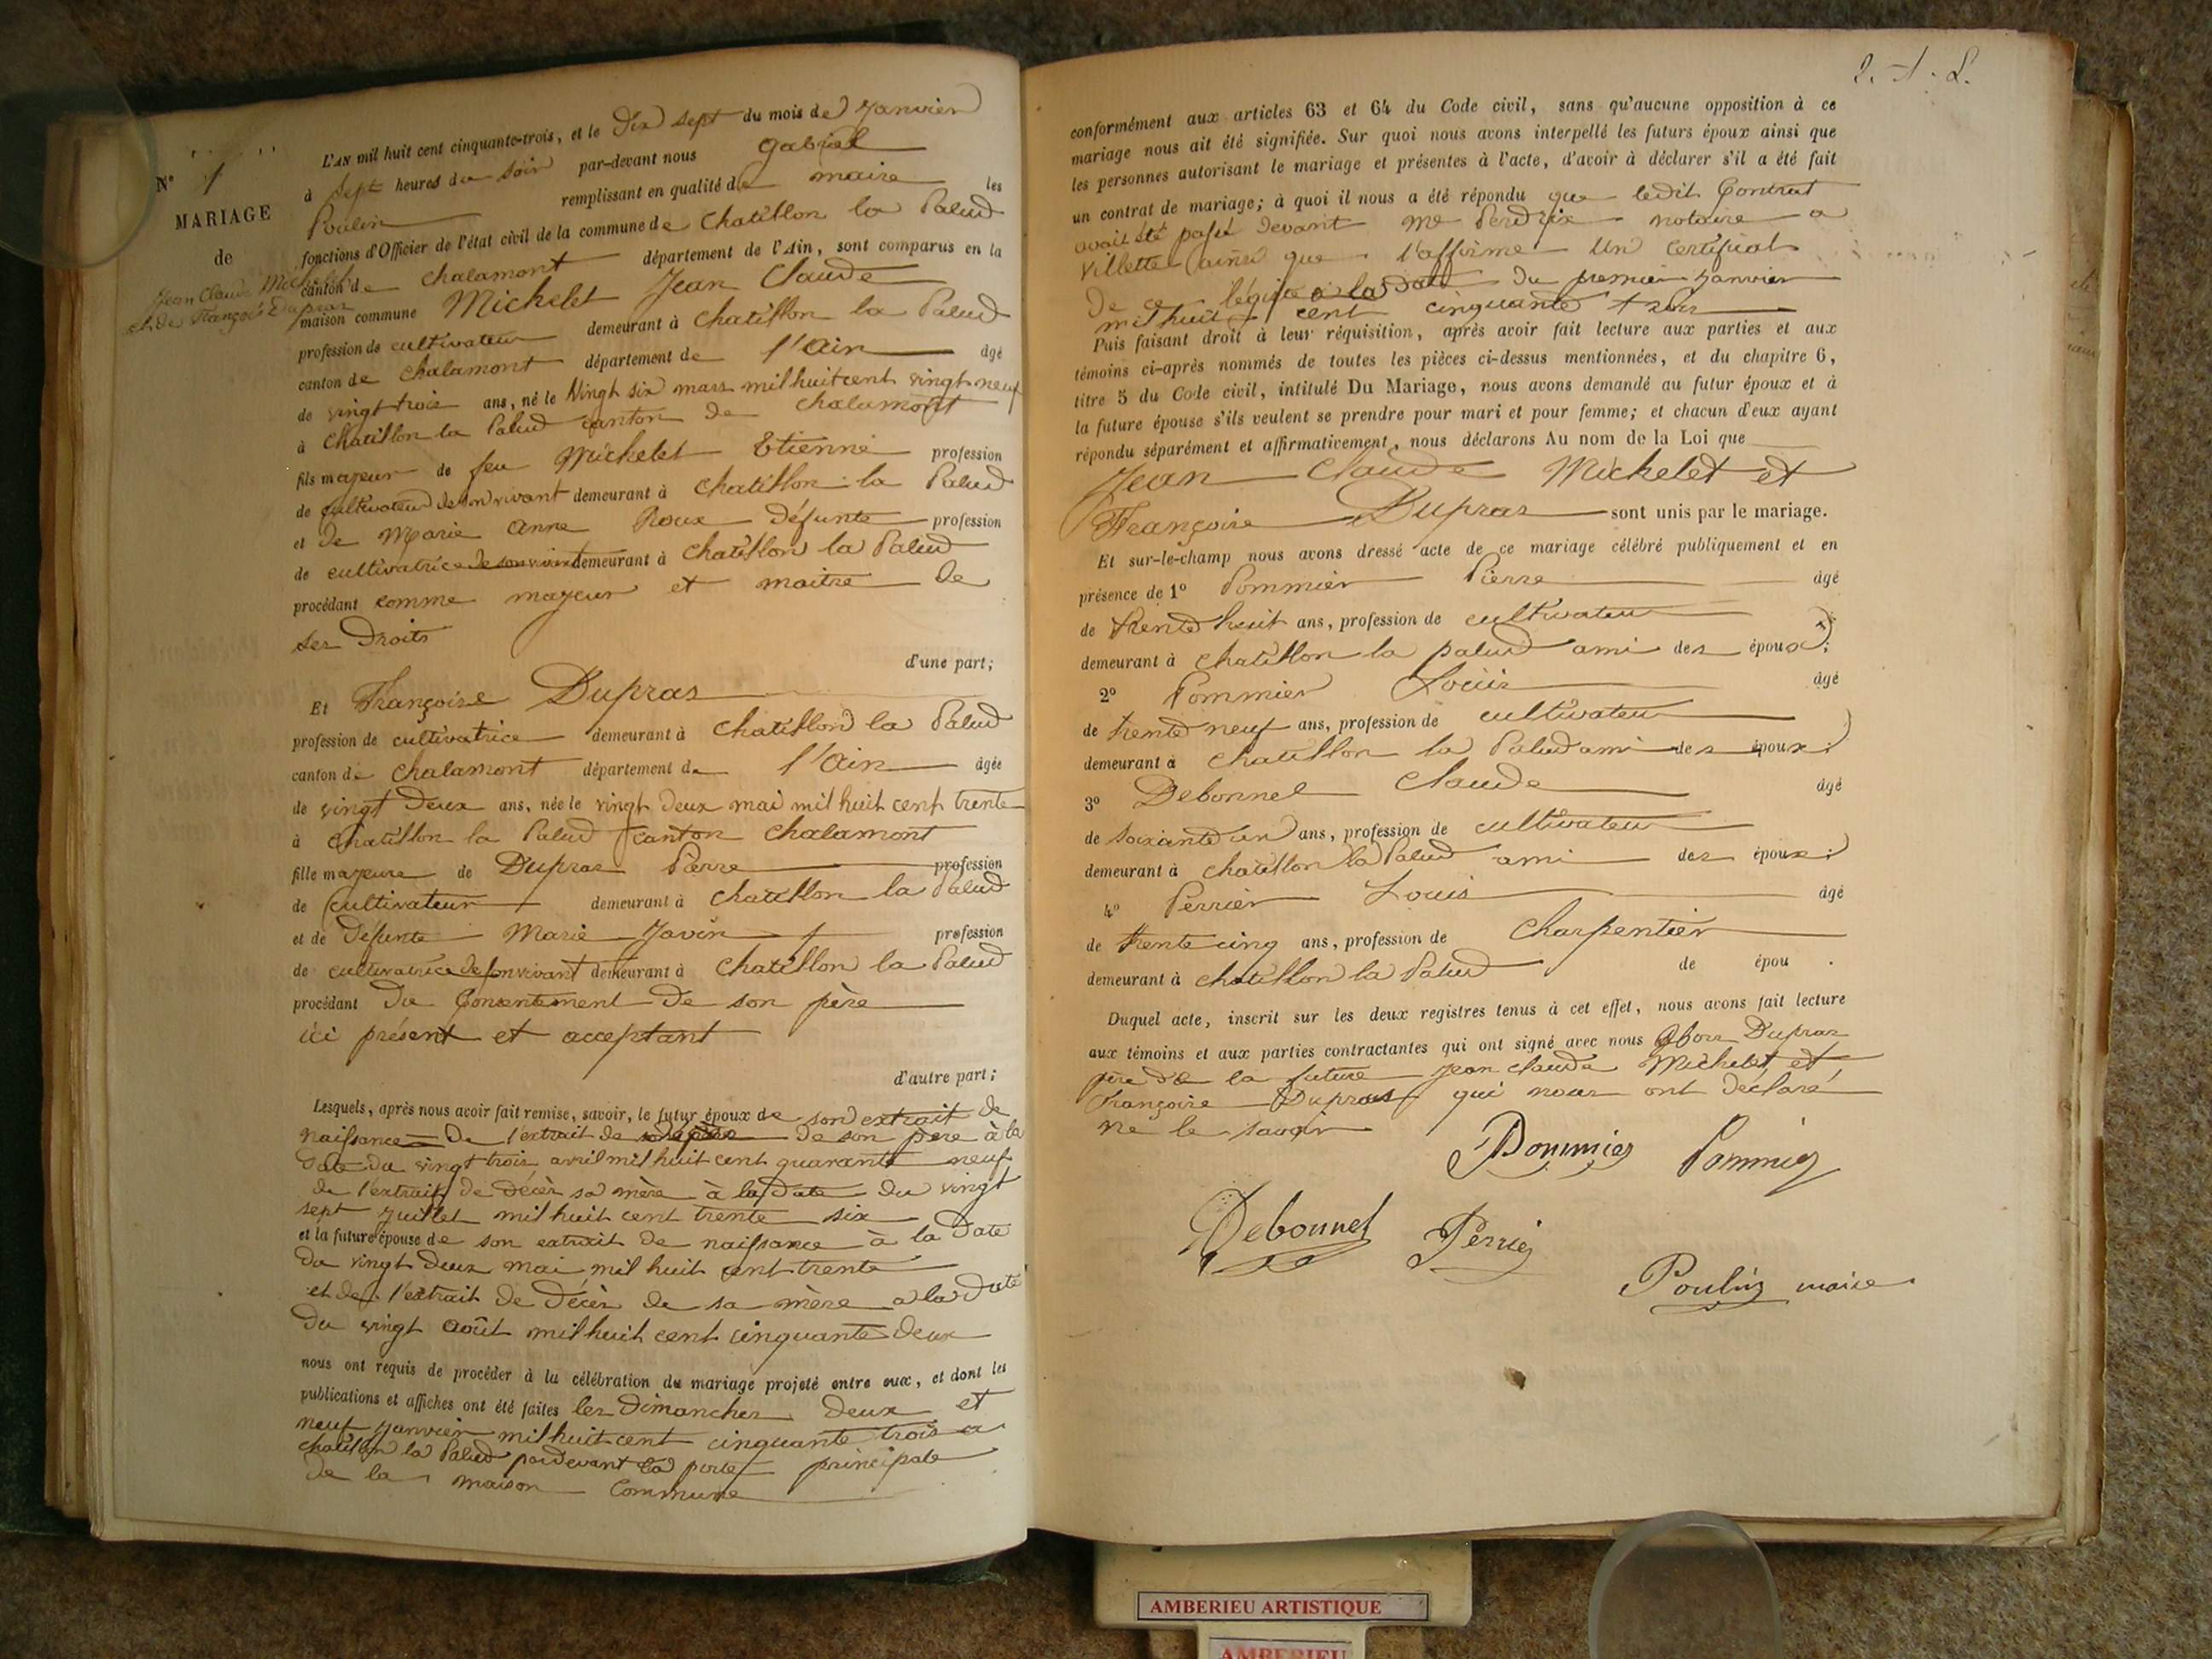 N° 1
MARIAGE
de
Jean Claude Michelet
et de Françoise Dupras
L'AN mil huit cent cinquante-trois, et le dix sept du mois de Janvier
à sept heures du soir par-devant nous gabriel
Poulin remplissant en qualité de maire les
fonctions d'Officier de l'état civil de la commune de Chatillon la Palud
canton de chalamont département de l'Ain, sont comparus en la
maison commune Michelet Jean Claude
profession de cultivateur demeurant à Chatillon la Palud
canton de Chalamont département de l'Ain âgé
de vingt trois ans, né le Vingt six mars mil huit cent vingt neuf
à Chatillon la Palud canton de chalamont
fils majeur de feu Michelet Etienne profession
de cultivateur de son vivant demeurant à Chatillon la Palud
et de Marie Anne Roux Défunte profession
de cultivatrice de son vivant demeurant à Chatillon la Palud
procédant comme majeur et maitre de
ses Droits
d'une part;
Et Françoise Dupras
profession de cultivatrice demeurant à Chatillon la Palud
canton de Chalamont département de l'Ain âgée
de vingt Deux ans, née le vingt Deux mai mil huit cent trente
à Chatillon la Palud canton Chalamont
fille majeure de Dupras Pierre profession
de Cultivateur demeurant à Chatillon la Palud
et de Défunte Marie Javin profession
de cultivatrice de son vivant demeurant à Chatillon la Palud
procédant Du Consentement De son père
ici présent et acceptant
d'autre part;
Lesquels, après nous avoir fait remise, savoir, le futur époux de son extrait de
naissance De l'extrait de de son père à la
Date du vingt trois avril mil huit cent quarante neuf
de l'extrait de Décès sa mère à la Date du vingt
sept Juillet mil huit cent trente six
et la future épouse de son extrait de naissance à la Date
Du vingt Deux mai mil huit cent trente
et de l'extrait de Décès de sa mère a la Date
Du vingt Août mil huit cent cinquante Deux
nous ont requis de procéder à la célébration du mariage projeté entre eux, et dont les
publications et affiches ont été faites les Dimanches Deux et
neuf Janvier mil huit cent cinquante trois a
chatillon la Palud pardevant la porte principale
de la maison Commune
2. A. L.
conformément aux articles 63 et 64 du Code civil, sans qu'aucune opposition à ce
mariage nous ait été signifiée. Sur quoi nous avons interpellé les futurs époux ainsi que
les personnes autorisant le mariage et présentes à l'acte, d'avoir à déclarer s'il a été fait
un contrat de mariage; à quoi il nous a été répondu que ledit Contrat
avait été passé devant Me Perdrix notaire a
Villette ainsi que l'affirme un certificat
De ce la Date du premier Janvier
mil huit cent cinquante trois
Puis faisant droit à leur réquisition, après avoir fait lecture aux parties et aux
témoins ci-après nommés de toutes les pièces ci-dessus mentionnées, et du chapitre 6,
titre 5 du Code civil, intitulé Du Mariage, nous avons demandé au futur époux et à
la future épouse s'ils veulent se prendre pour mari et pour femme; et chacun d'eux ayant
répondu séparément et affirmativement, nous déclarons Au nom de la Loi que
Jean Claude Michelet et
Françoise Dupras sont unis par le mariage.
Et sur-le-champ nous avons dressé acte de ce mariage célébré publiquement et en
présence de 1° Pommier Pierre âgé
de trente huit ans, profession de cultivateur
demeurant à Chatillon la palud ami des époux;
2° Pommier Louis âgé
de trente neuf ans, profession de cultivateur
demeurant à Chatillon la Palud ami des époux;
3° Debonnel Claude âgé
de soixante un ans, profession de cultivateur
demeurant à Chatillon la Palud ami des époux;
4° Perrier Louis âgé
de trente cinq ans, profession de Charpentier
demeurant à chatillon la Palud de épou .
Duquel acte, inscrit sur les deux registres tenus à cet effet, nous avons fait lecture
aux témoins et aux parties contractantes qui ont signé avec nous Dupras
père de la future Jean Claude Michelet et
Françoise Dupras qui nous ont déclaré
ne le savoir
Pommier Pommier
Debonnel Perrier
Poulin maire
AMBERIEU ARTISTIQUE
AMBERIEU